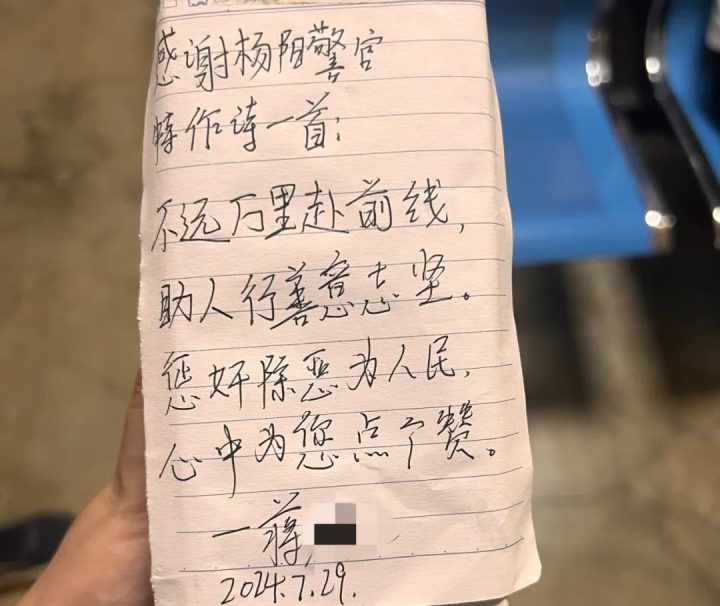 感谢杨阳警官
特作诗一首：
不远万里赴前线，
助人行善意志坚。
惩奸除恶为人民，
心中为您点个赞。
一蒋
2024.7.29.